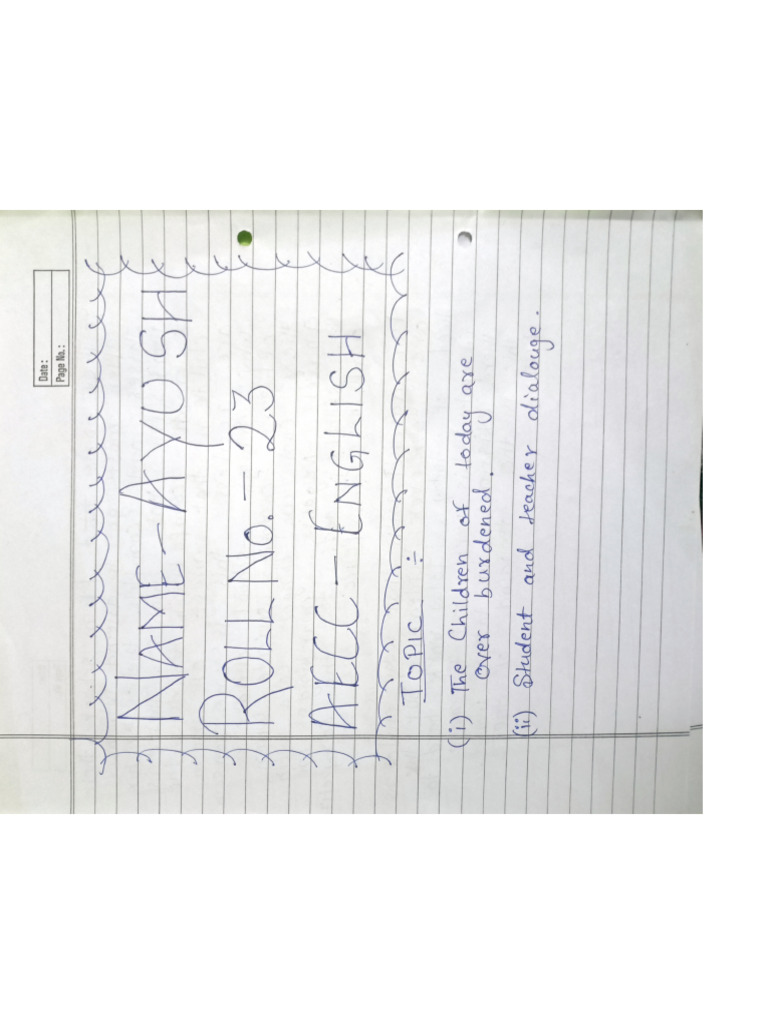 Date :
Page No. :
NAME - AYUSH
ROLL NO. - 23
AECC - ENGLISH
TOPIC :-
(i) The Children of today are
over burdened.
(ii) Student and teacher dialouge.